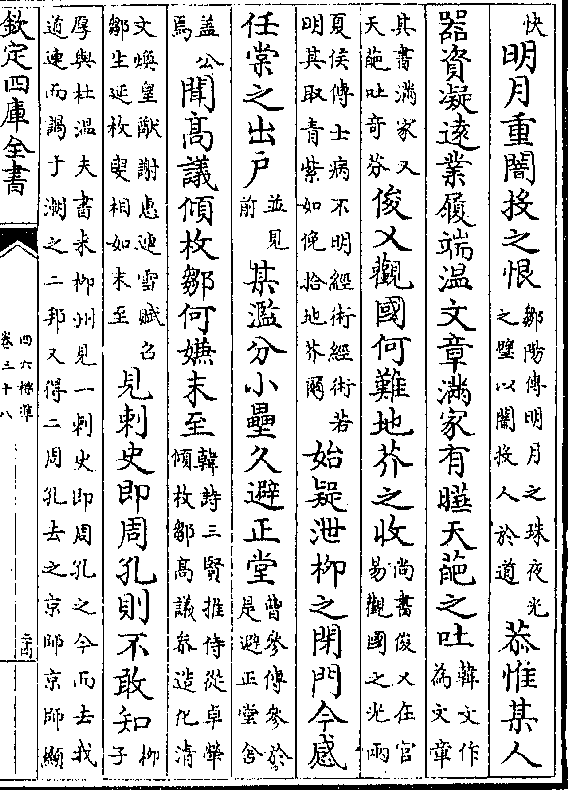 快明月重闇投之恨鄒陽傳明月之珠夜光之璧以闇投人於道恭惟某人
器資凝遠業履端温文章滿家有曄天葩之吐韓文作為文章
其書滿家又天葩吐竒芬俊乂觀國何難地芥之收尚書俊乂在官易觀國之光兩
夏侯傳士病不明經術經術若明其取青紫如俛拾地芥爾始疑泄柳之閉門今感
任棠之出戸並見前某濫分小壘久避正堂曹參傳參於是避正堂舍
蓋公焉聞髙議傾枚鄒何嫌末至韓詩三賢推侍從卓犖傾枚鄒髙議參造化清
文煥皇猷謝惠連雪賦召鄒生延枚叟相如末至見刺史即周孔則不敢知柳子
厚與杜温夫書來柳州見一刺史即周孔之今而去我道連而謁于潮之二邦又得二周孔去之京師京師顯
欽定四庫全書
四六標準
卷三十八